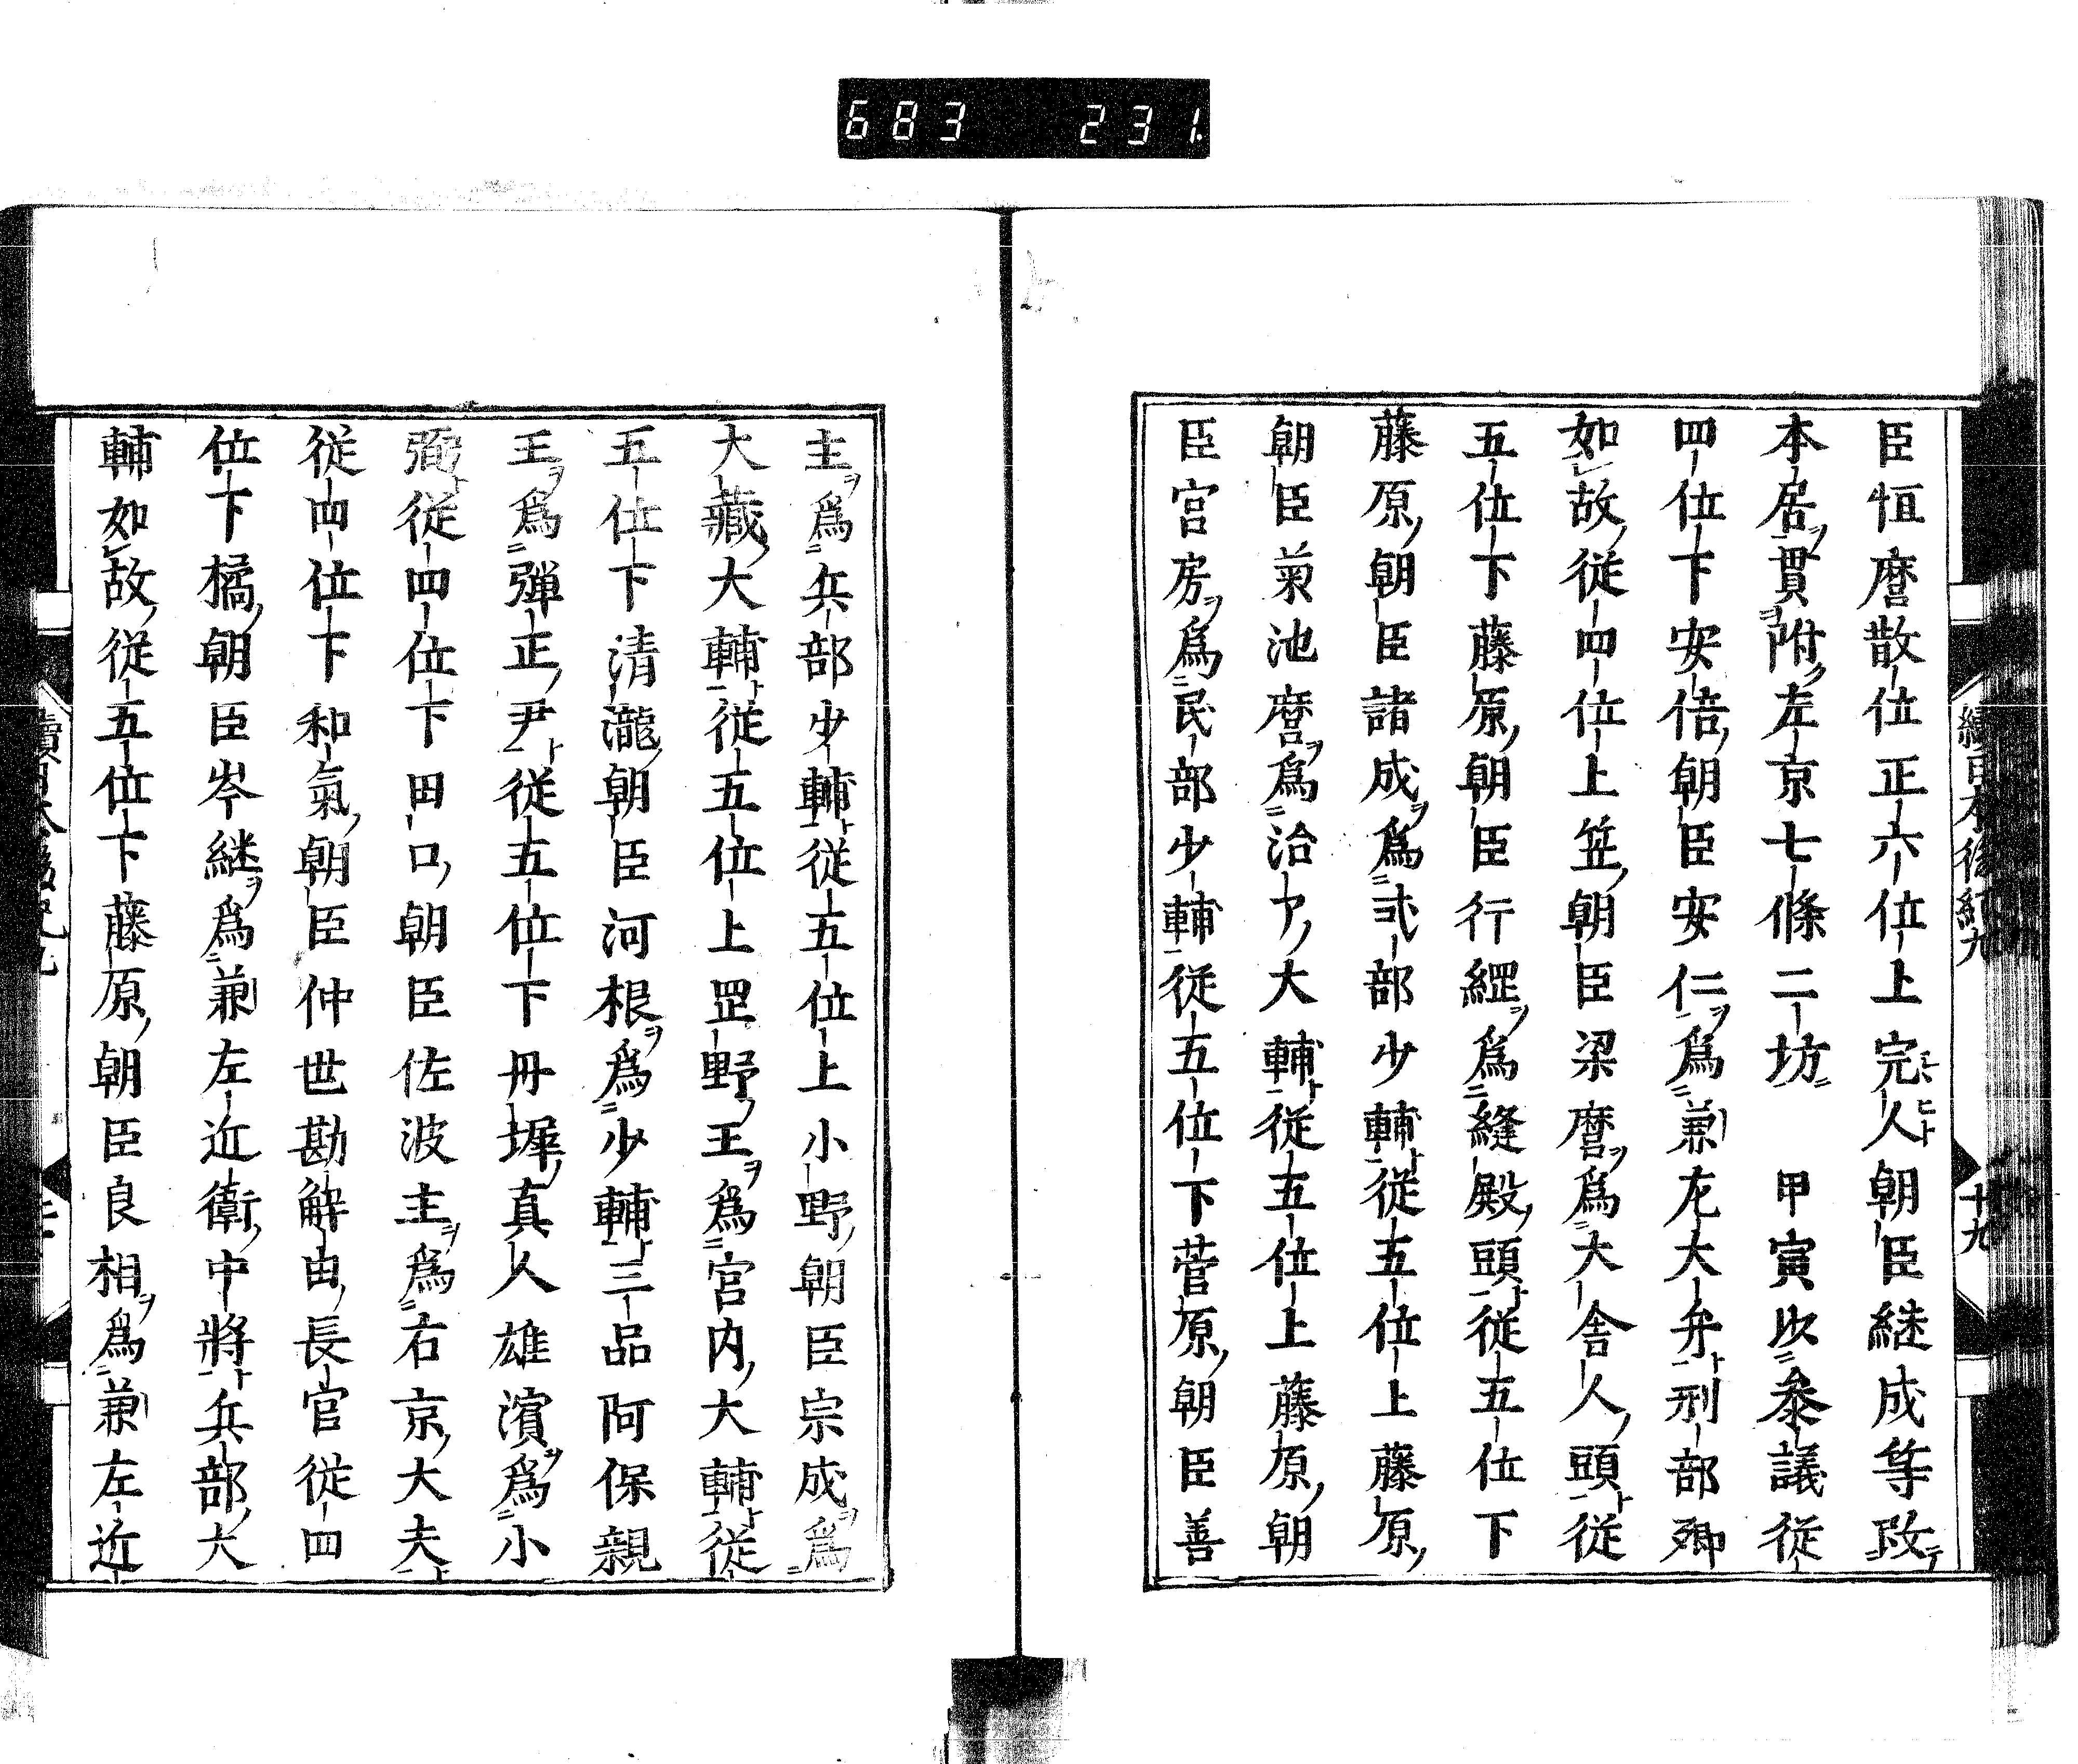 683 231
臣恒麿散位正六位上完人朝臣継成等改
本居貫附左京七條二坊 甲寅以參議従
四位下安倍朝臣安仁爲兼左大弁刑部卿
如故従四位上笠朝臣梁麿爲大舎人頭従
五位下藤原朝臣行縄爲縫殿頭従五位下
藤原朝臣諸成爲式部少輔従五位上藤原
朝臣菊池麿爲治部大輔従五位上藤原朝
臣宮房爲民部少輔従五位下菅原朝臣善
續日本後紀九 十九
主爲兵部少輔従五位上小野朝臣宗成爲
大藏大輔従五位上罡野王爲宮内大輔従
五位下清瀧朝臣河根爲少輔三品阿保親
王爲弾正尹従五位下丹墀真人雄濱爲小
弼従四位下田口朝臣佐波主爲右京大夫
従四位下和氣朝臣仲世勘解由長官従四
位下橘朝臣岑継爲兼左近衛中將兵部大
輔如故従五位下藤原朝臣良相爲兼左近